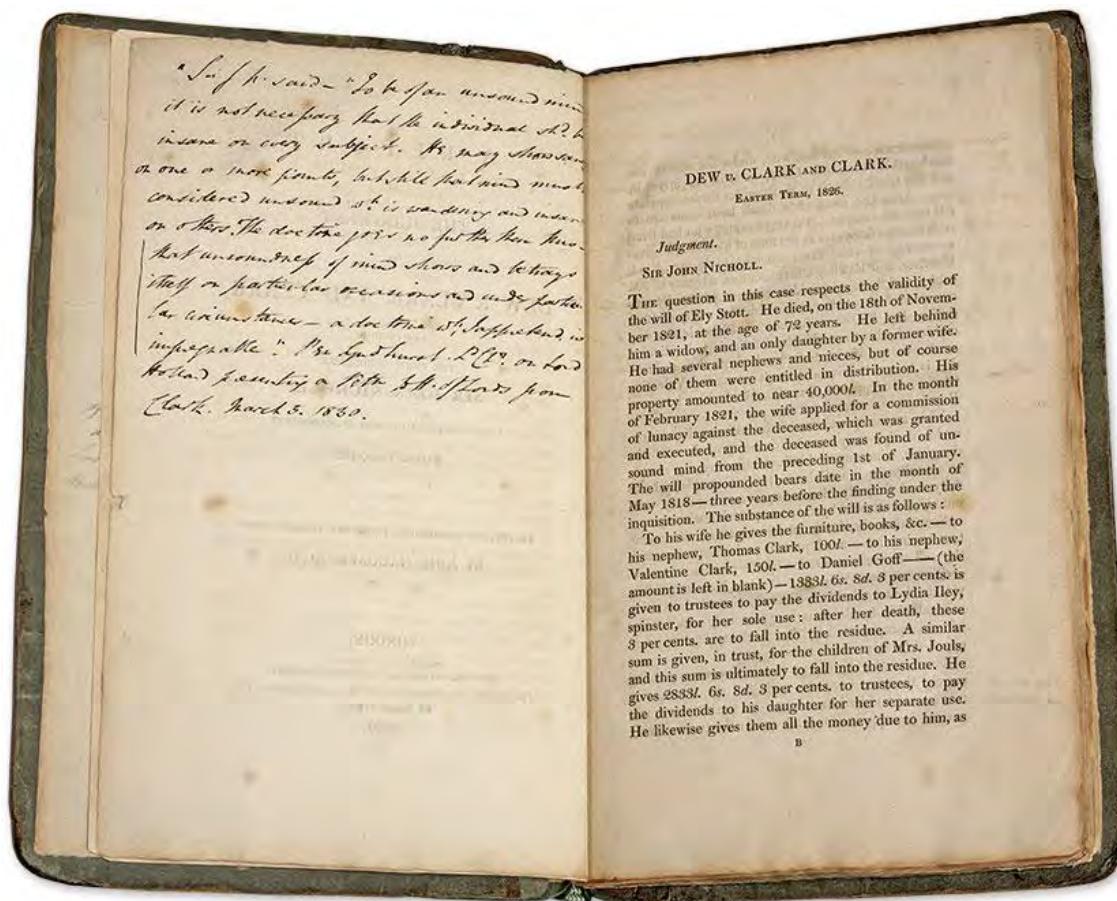 "Sir J. N. said – "To be of an unsound mind
it is not necessary that the individual shd. be
insane on every subject. He may shew sane
on one or more points, but still that mind must be
considered unsound wh. is wandering and insane
on others. The doctrine goes no further than this –
that unsoundness of mind shows and betrays
itself on particular occasions and under particu-
lar circumstances – a doctrine wh. I apprehend is
impregnable". Per Lyndhurst. Ld. Cr. on Lord
Holland presenting a Petn. to H. of Lords from
Clark. March 5. 1830.
DEW v. CLARK AND CLARK.
EASTER TERM, 1826.
Judgment.
SIR JOHN NICHOLL.
THE question in this case respects the validity of
the will of Ely Stott. He died, on the 18th of Novem-
ber 1821, at the age of 72 years. He left behind
him a widow, and an only daughter by a former wife.
He had several nephews and nieces, but of course
none of them were entitled in distribution. His
property amounted to near 40,000l. In the month
of February 1821, the wife applied for a commission
of lunacy against the deceased, which was granted
and executed, and the deceased was found of un-
sound mind from the preceding 1st of January.
The will propounded bears date in the month of
May 1818—three years before the finding under the
inquisition. The substance of the will is as follows:
To his wife he gives the furniture, books, &c.—to
his nephew, Thomas Clark, 100l.—to his nephew,
Valentine Clark, 150l.—to Daniel Goff——(the
amount is left in blank)—1333l. 6s. 8d. 3 per cents. is
given to trustees to pay the dividends to Lydia Iley,
spinster, for her sole use: after her death, these
3 per cents. are to fall into the residue. A similar
sum is given, in trust, for the children of Mrs. Jouls,
and this sum is ultimately to fall into the residue. He
gives 2833l. 6s. 8d. 3 per cents. to trustees, to pay
the dividends to his daughter for her separate use.
He likewise gives them all the money due to him, as
B